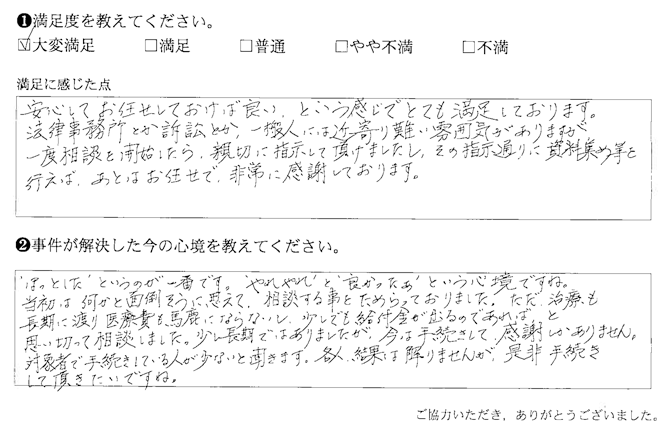 ❶満足度を教えてください。
☑大変満足 □満足 □普通 □やや不満 □不満
満足に感じた点
安心してお任せしておけば良い、という感じでとても満足しております。
法律事務所とか訴訟とか、一搬人には近寄り難い雰囲気がありますが
一度相談を開始したら、親切に指示して頂けましたし、その指示通りに資料集め等を
行えば、あとはお任せで、非常に感謝しております。
❷事件が解決した今の心境を教えてください。
"ほっとした"というのが一番です。"やれやれ"と"良かったぁ"という心境ですね。
当初は何かと面倒そうに思えて、相談する事をためらっておりました。ただ、治療も
長期に渡り医療費も馬鹿にならないし、少しでも給付金が出るのであれば、と
思い切って相談しました。少し長期ではありましたが、今は手続きして、感謝しかありません。
対象者で手続きしている人が少ないと聞きます。各人、結果は解りませんが、是非手続き
して頂きたいですね。
ご協力いただき、ありがとうございました。